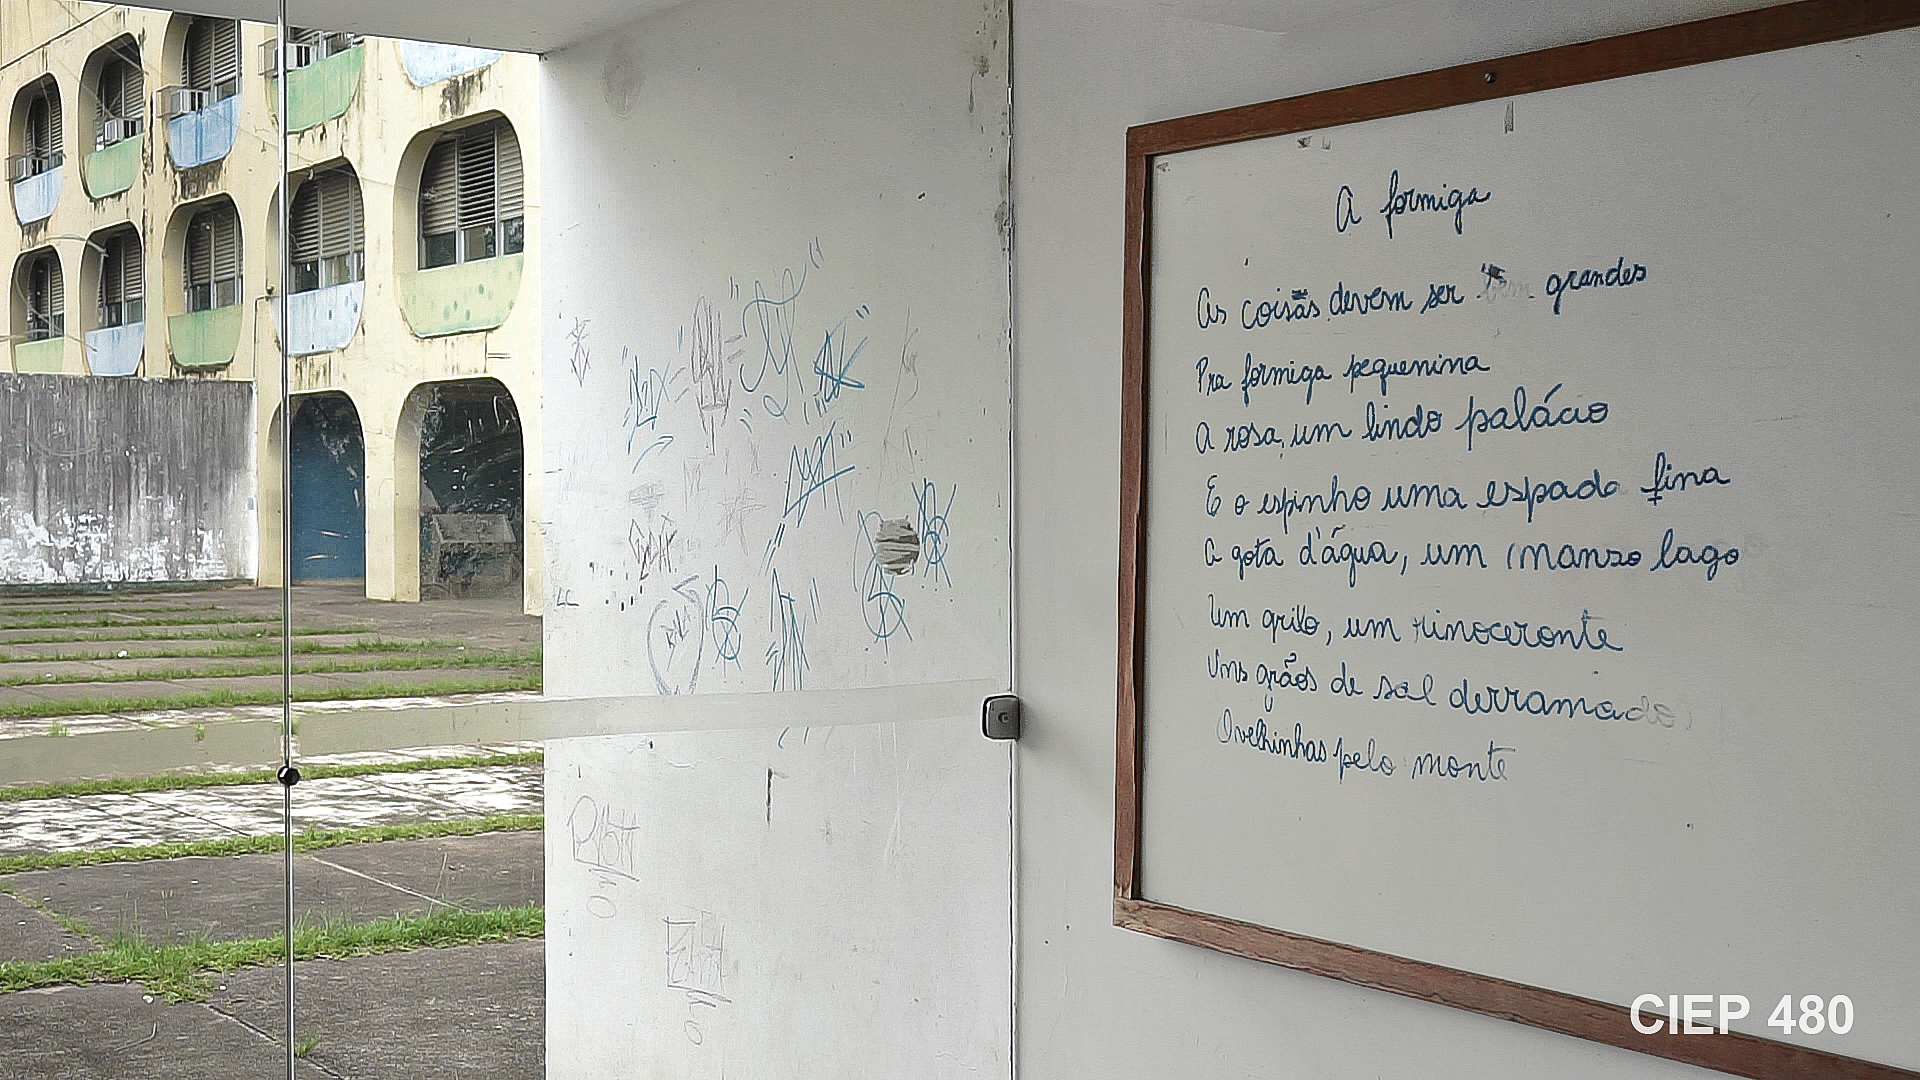 A formiga
As coisas devem ser bem grandes
Pra formiga pequenina
A rosa, um lindo palácio
E o espinho uma espada fina
A gota d'água, um manso lago
Um grilo, um rinoceronte
Uns grãos de sal derramado,
Ovelhinhas pelo monte
CIEP 480